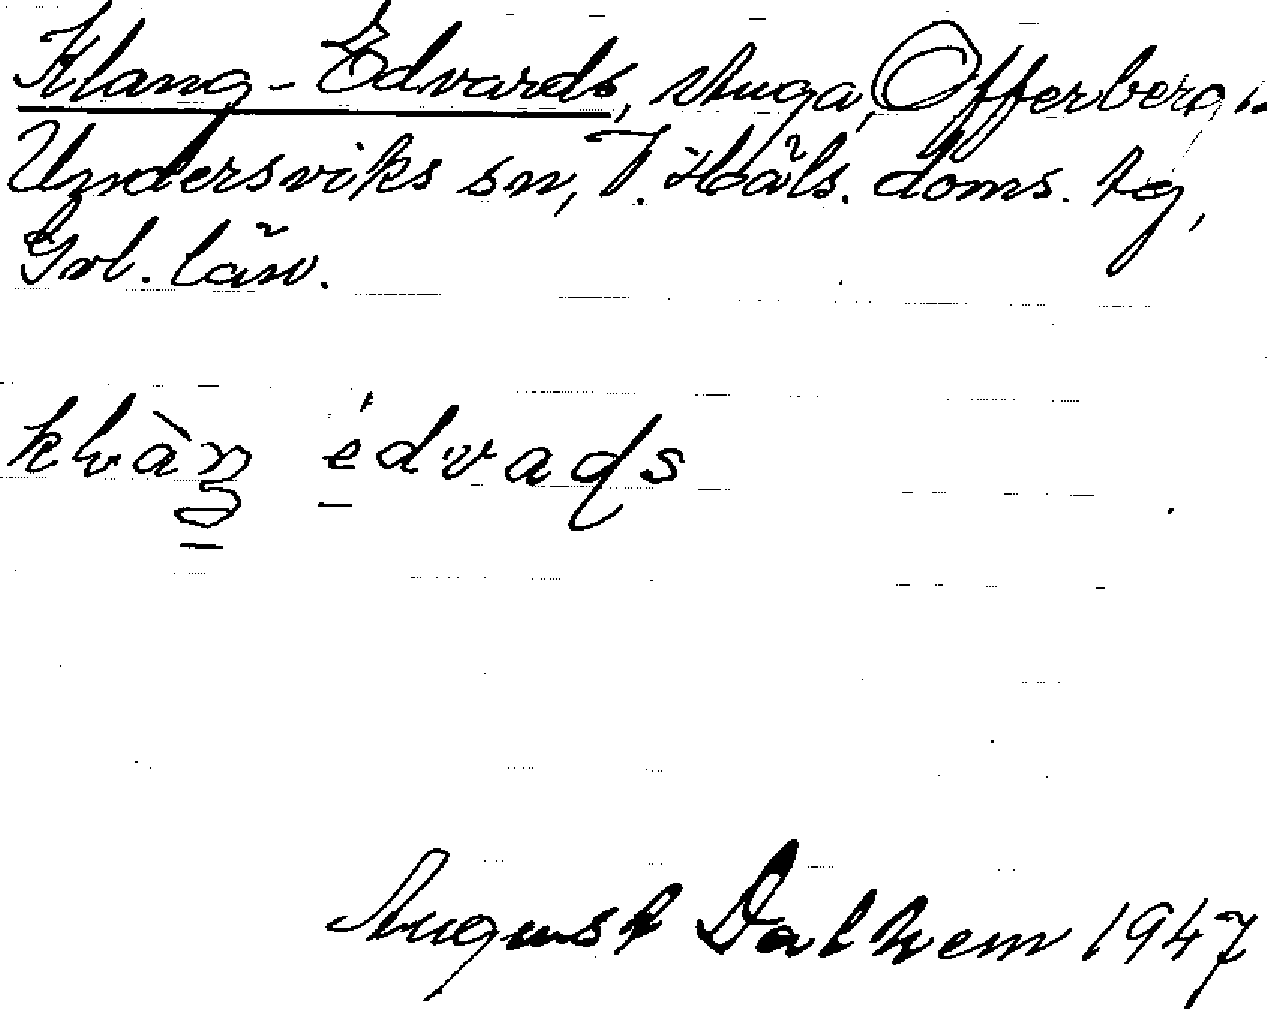 Klang-Edvards, stuga, Offerberg i.
Undersviks sn, V. Häls. doms. tg,
Gvl. län.
edvaɖs
August Dalhem 1947